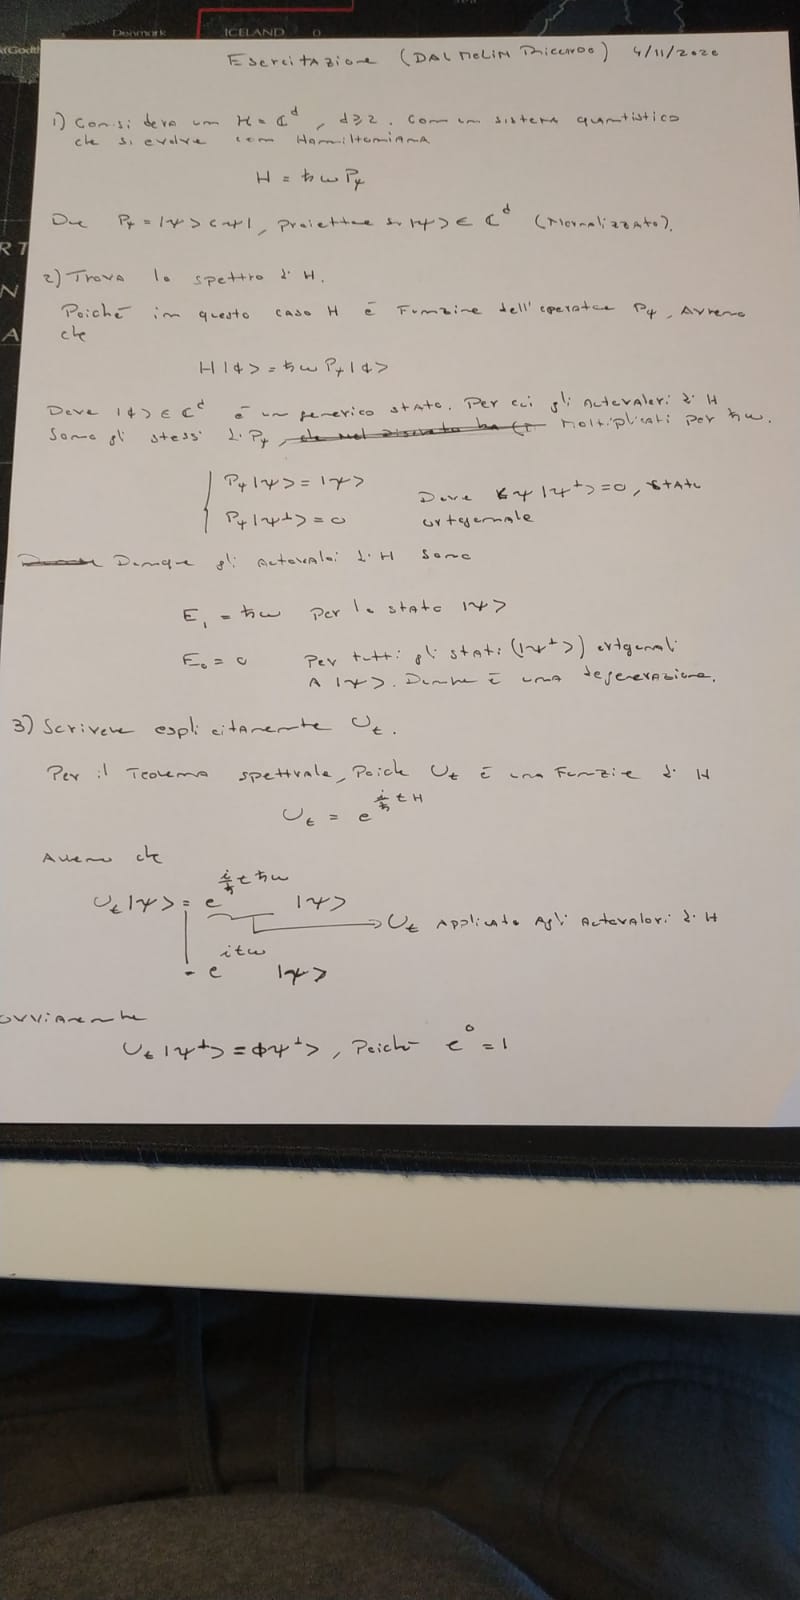 Denmark
ICELAND
Esercitazione (DAL MOLIN Riccardo) 4/11/2020
1) Considera un H = ℂ^d, d≥2. Com un sistema quantistico
che si evolve com Hamiltoniana
H = ħω P_ψ
Dove P_ψ = |ψ><ψ|, proiettore su |ψ> ∈ ℂ^d (Normalizzato).
2) Trova lo spettro di H.
Poiché in questo caso H è Funzione dell'operatore P_ψ, Avremo
che
H|ϕ> = ħω P_ψ|ϕ>
Dove |ϕ> ∈ ℂ^d è un generico stato. Per cui gli Autovalori di H
Sono gli stessi di P_ψ, Moltiplicati per ħω.
P_ψ|ψ> = |ψ>
P_ψ|ψ^⊥> = 0
Dove <ψ|ψ^⊥> = 0, stato
ortogonale
Dunque gli autovalori di H sono
E₁ = ħω Per lo stato |ψ>
E₀ = 0 Per tutti gli stati (|ψ^⊥>) ortogonali
A |ψ>. è una degenerazione.
3) Scrivere esplicitamente U_t.
Per il Teorema spettrale, Poiché U_t è una Funzione di H
U_t = e^{i/ħ t H}
Avremo che
U_t|ψ> = e^{i/ħ t ħω} |ψ>
U_t Applicato Agli Autovalori di H
= e^{itω} |ψ>
ovviamente
U_t|ψ^⊥> = ψ^⊥>, Poiché e^0 = 1